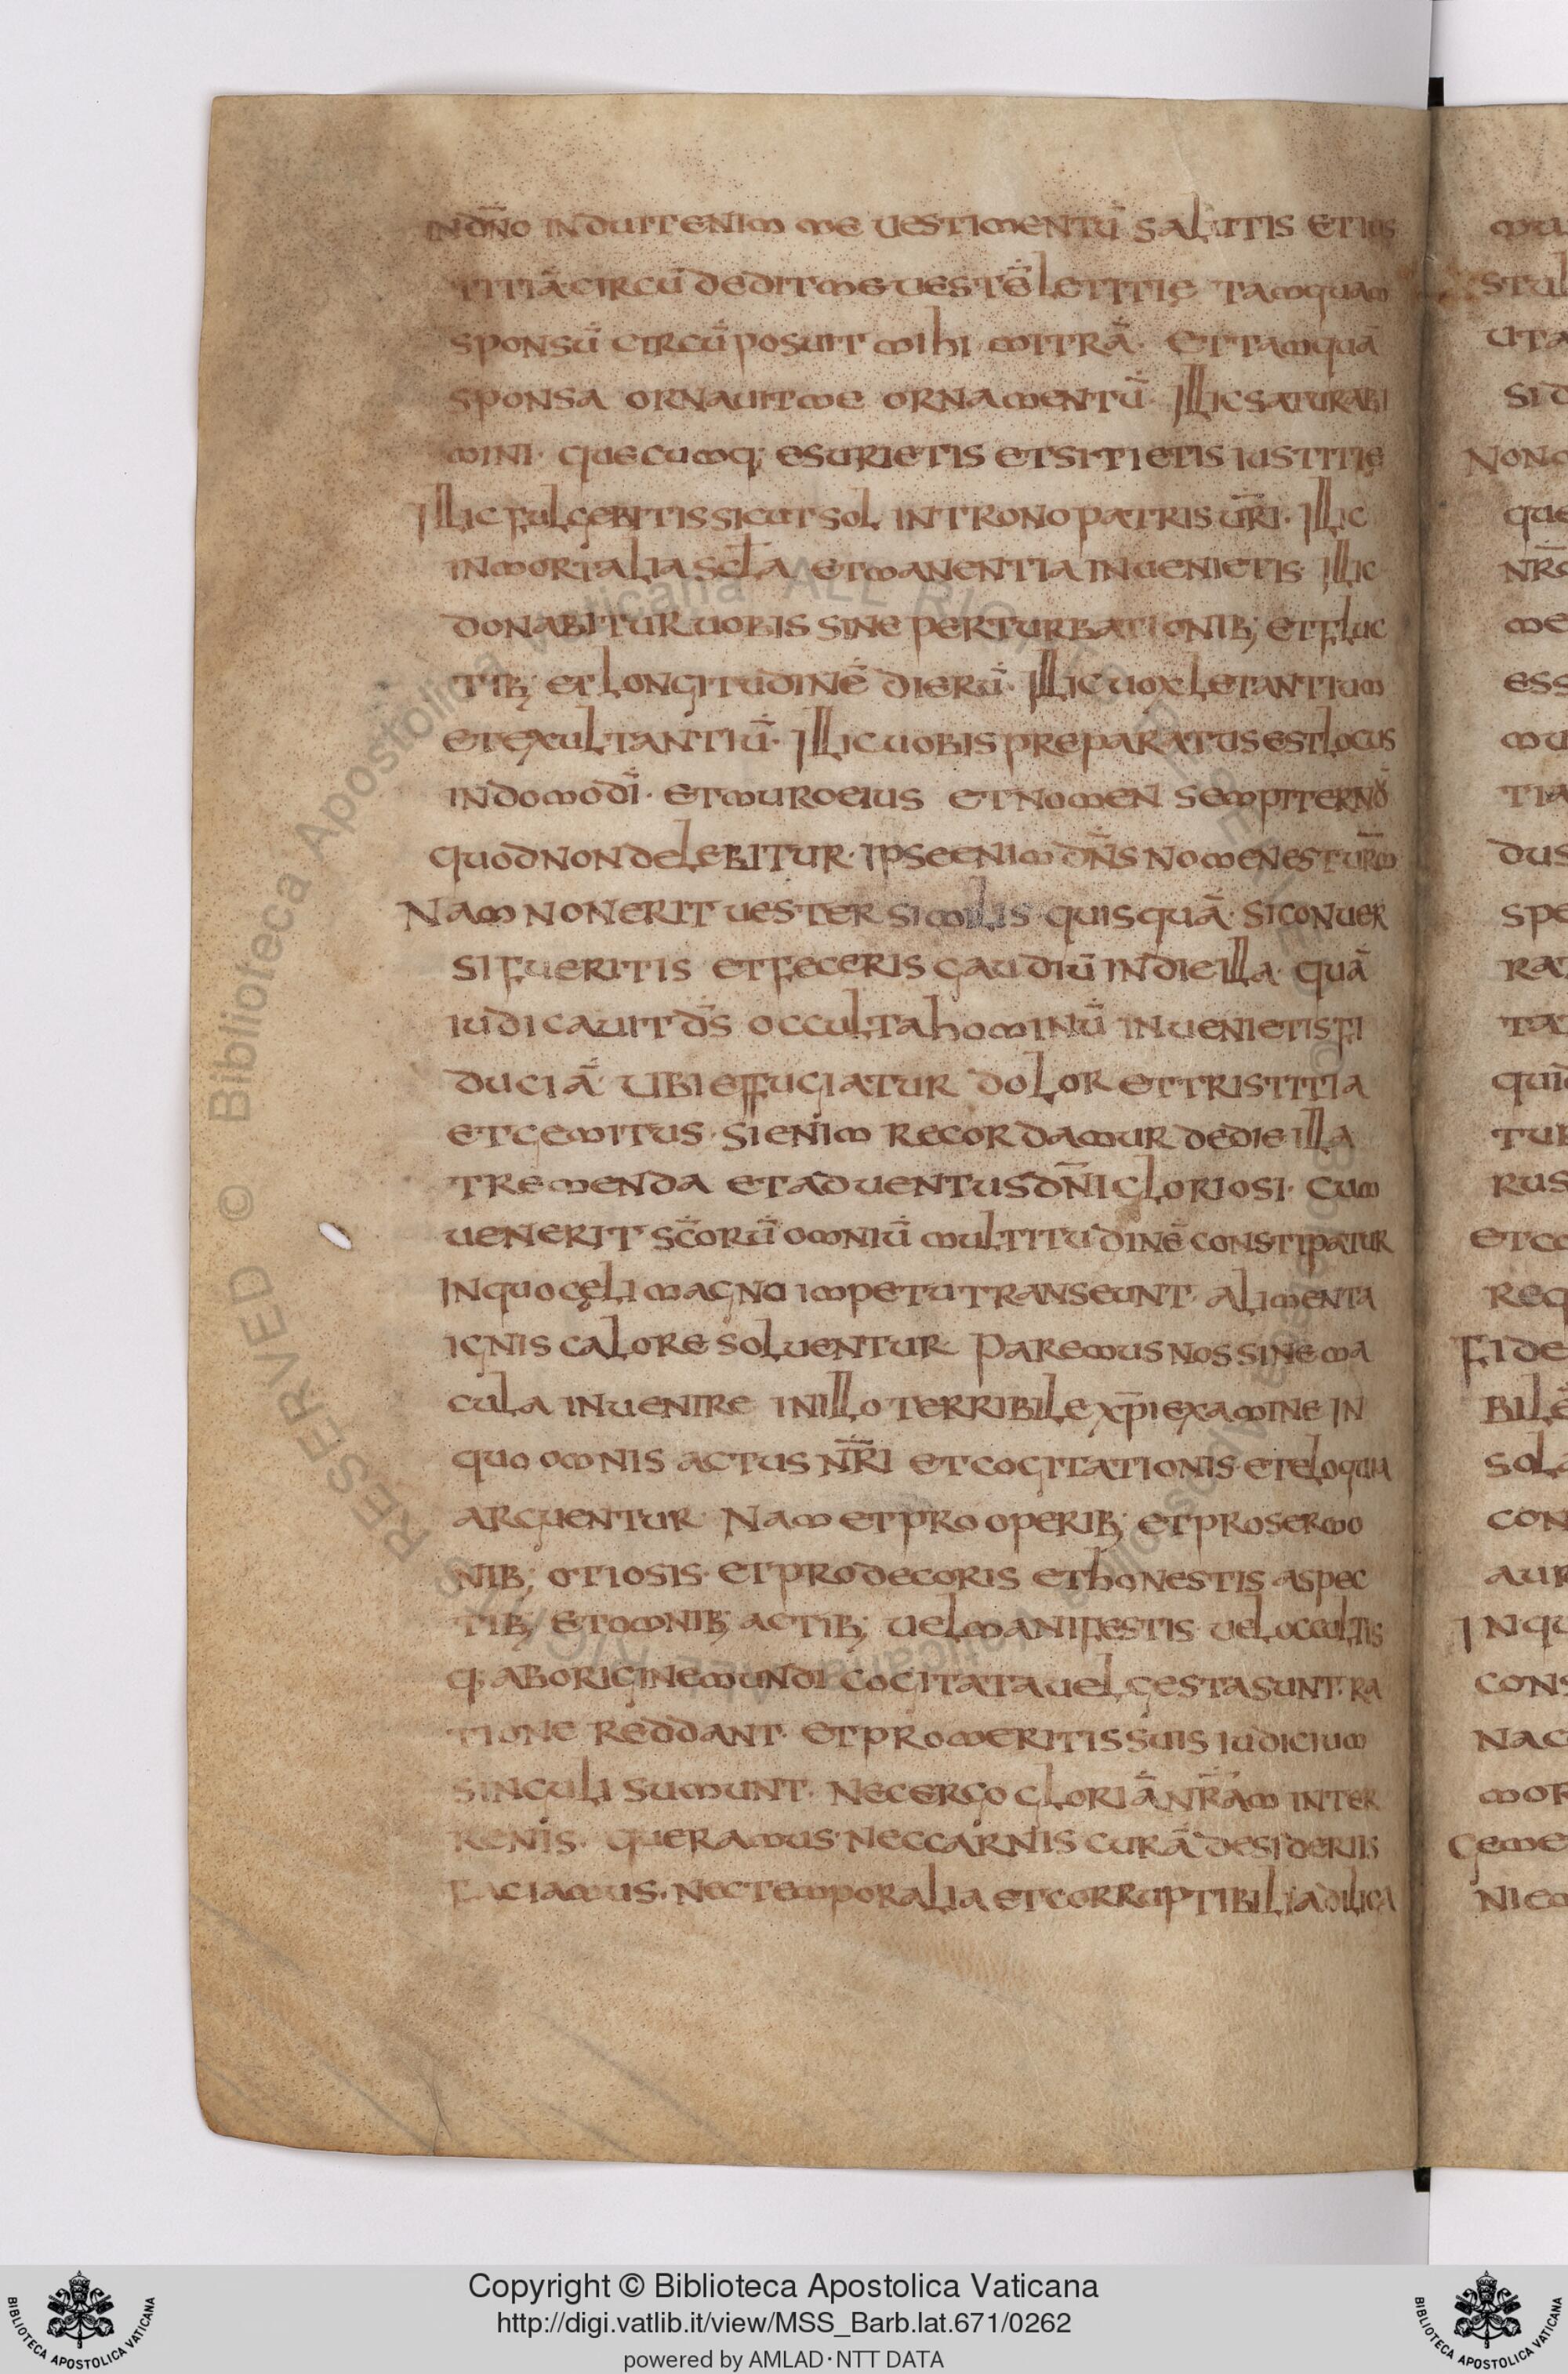 IN dn̄o INduit enim me uestimentū salutis et ius
titiā circū dedit me uestē letitię tamquam
sponsū circū posuit mihi mitrā· Et tamquā
sponsa ornauit me ornamentū· Illic saturabi
mini· quecumq; esurietis et sitietis iustitię
Illic fulgebitis sicut sol in trono patris ur̄i· Illic
inmortalia scla et manentia inuenietis· Illic
donabitur uobis sine perturbationib; et fluc
tib; et longitudinē dierū· Illic uox letantium
et exultantiū· Illic uobis preparatus est locus
in domo dī· et muro eius et nomen sempiternō
quod non delebitur· ipse enim dn̄s nomen est ur̄m
Nam non erit uester similis quisquā· si conuer
si fueritis et feceris gaudiū in die illa· quā
iudicauit ds̄ occulta hominū inuenietis fi
duciā· Ubi effugiatur dolor et tristitia
et gemitus· Si enim recordamur de die illa
tremenda et aduentus dn̄i gloriosi· Cum
uenerit sc̄orū omniū multitudinē constipatur
In quo cęli magno impetu transeunt· alimenta
ignis calore soluentur· Paremus nos sine ma
cula inuenire in illo terribile xp̄i examine in
quo omnis actus nr̄i et cogitationis· et eloquia
arguentur· Nam et pro operib; et pro sermo
nib; otiosis· et pro decoris et honestis aspec
tib; et omnib; actib; uel manifestis· uel occultis
q; ab origine mundi cogitata uel gesta sunt· ra
tione reddant· et pro meritis suis iudicium
singuli sumunt· nec ergo gloriā nr̄ām inter
renis· queramus· nec carnis curā desideriis
faciamus· nec temporalia et corruptibilia dilica
© Biblioteca Apostolica Vaticana ALL RIGHTS RESERVED
Copyright © Biblioteca Apostolica Vaticana
http://digi.vatlib.it/view/MSS_Barb.lat.671/0262
powered by AMLAD·NTT DATA
BIBLIOTECA APOSTOLICA VATICANA
BIBLIOTECA APOSTOLICA VATICANA